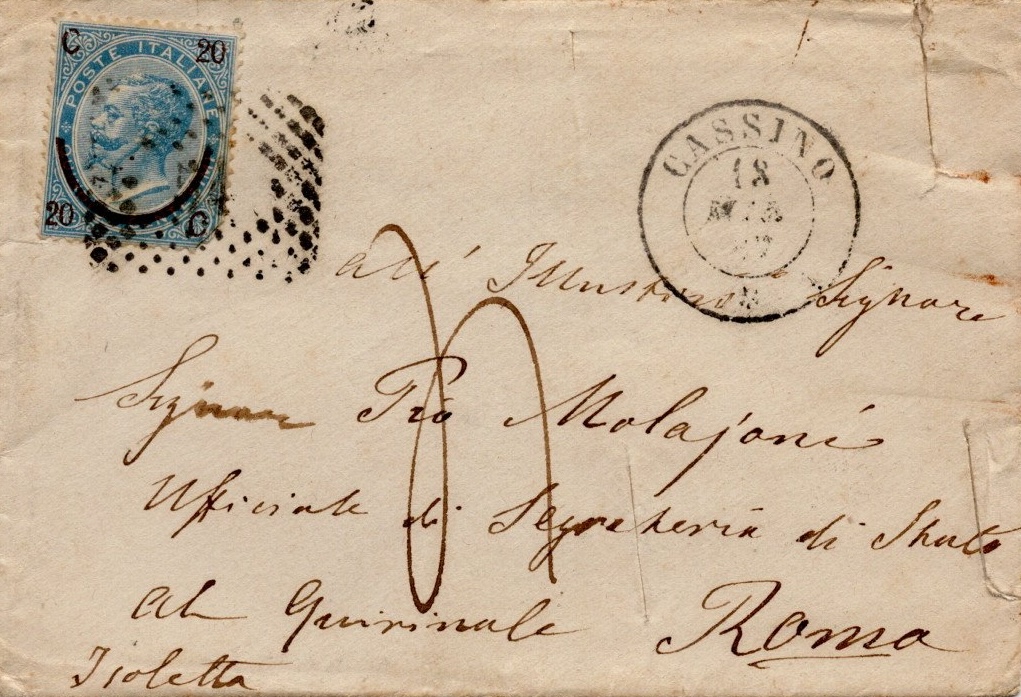 C 20
POSTE ITALIANE
20 C
CASSINO
18
all' Illustrmo Signore
Signore Pio Molajoni
Ufficiale di Segreteria di Stato
al Quirinale Roma
Isoletta